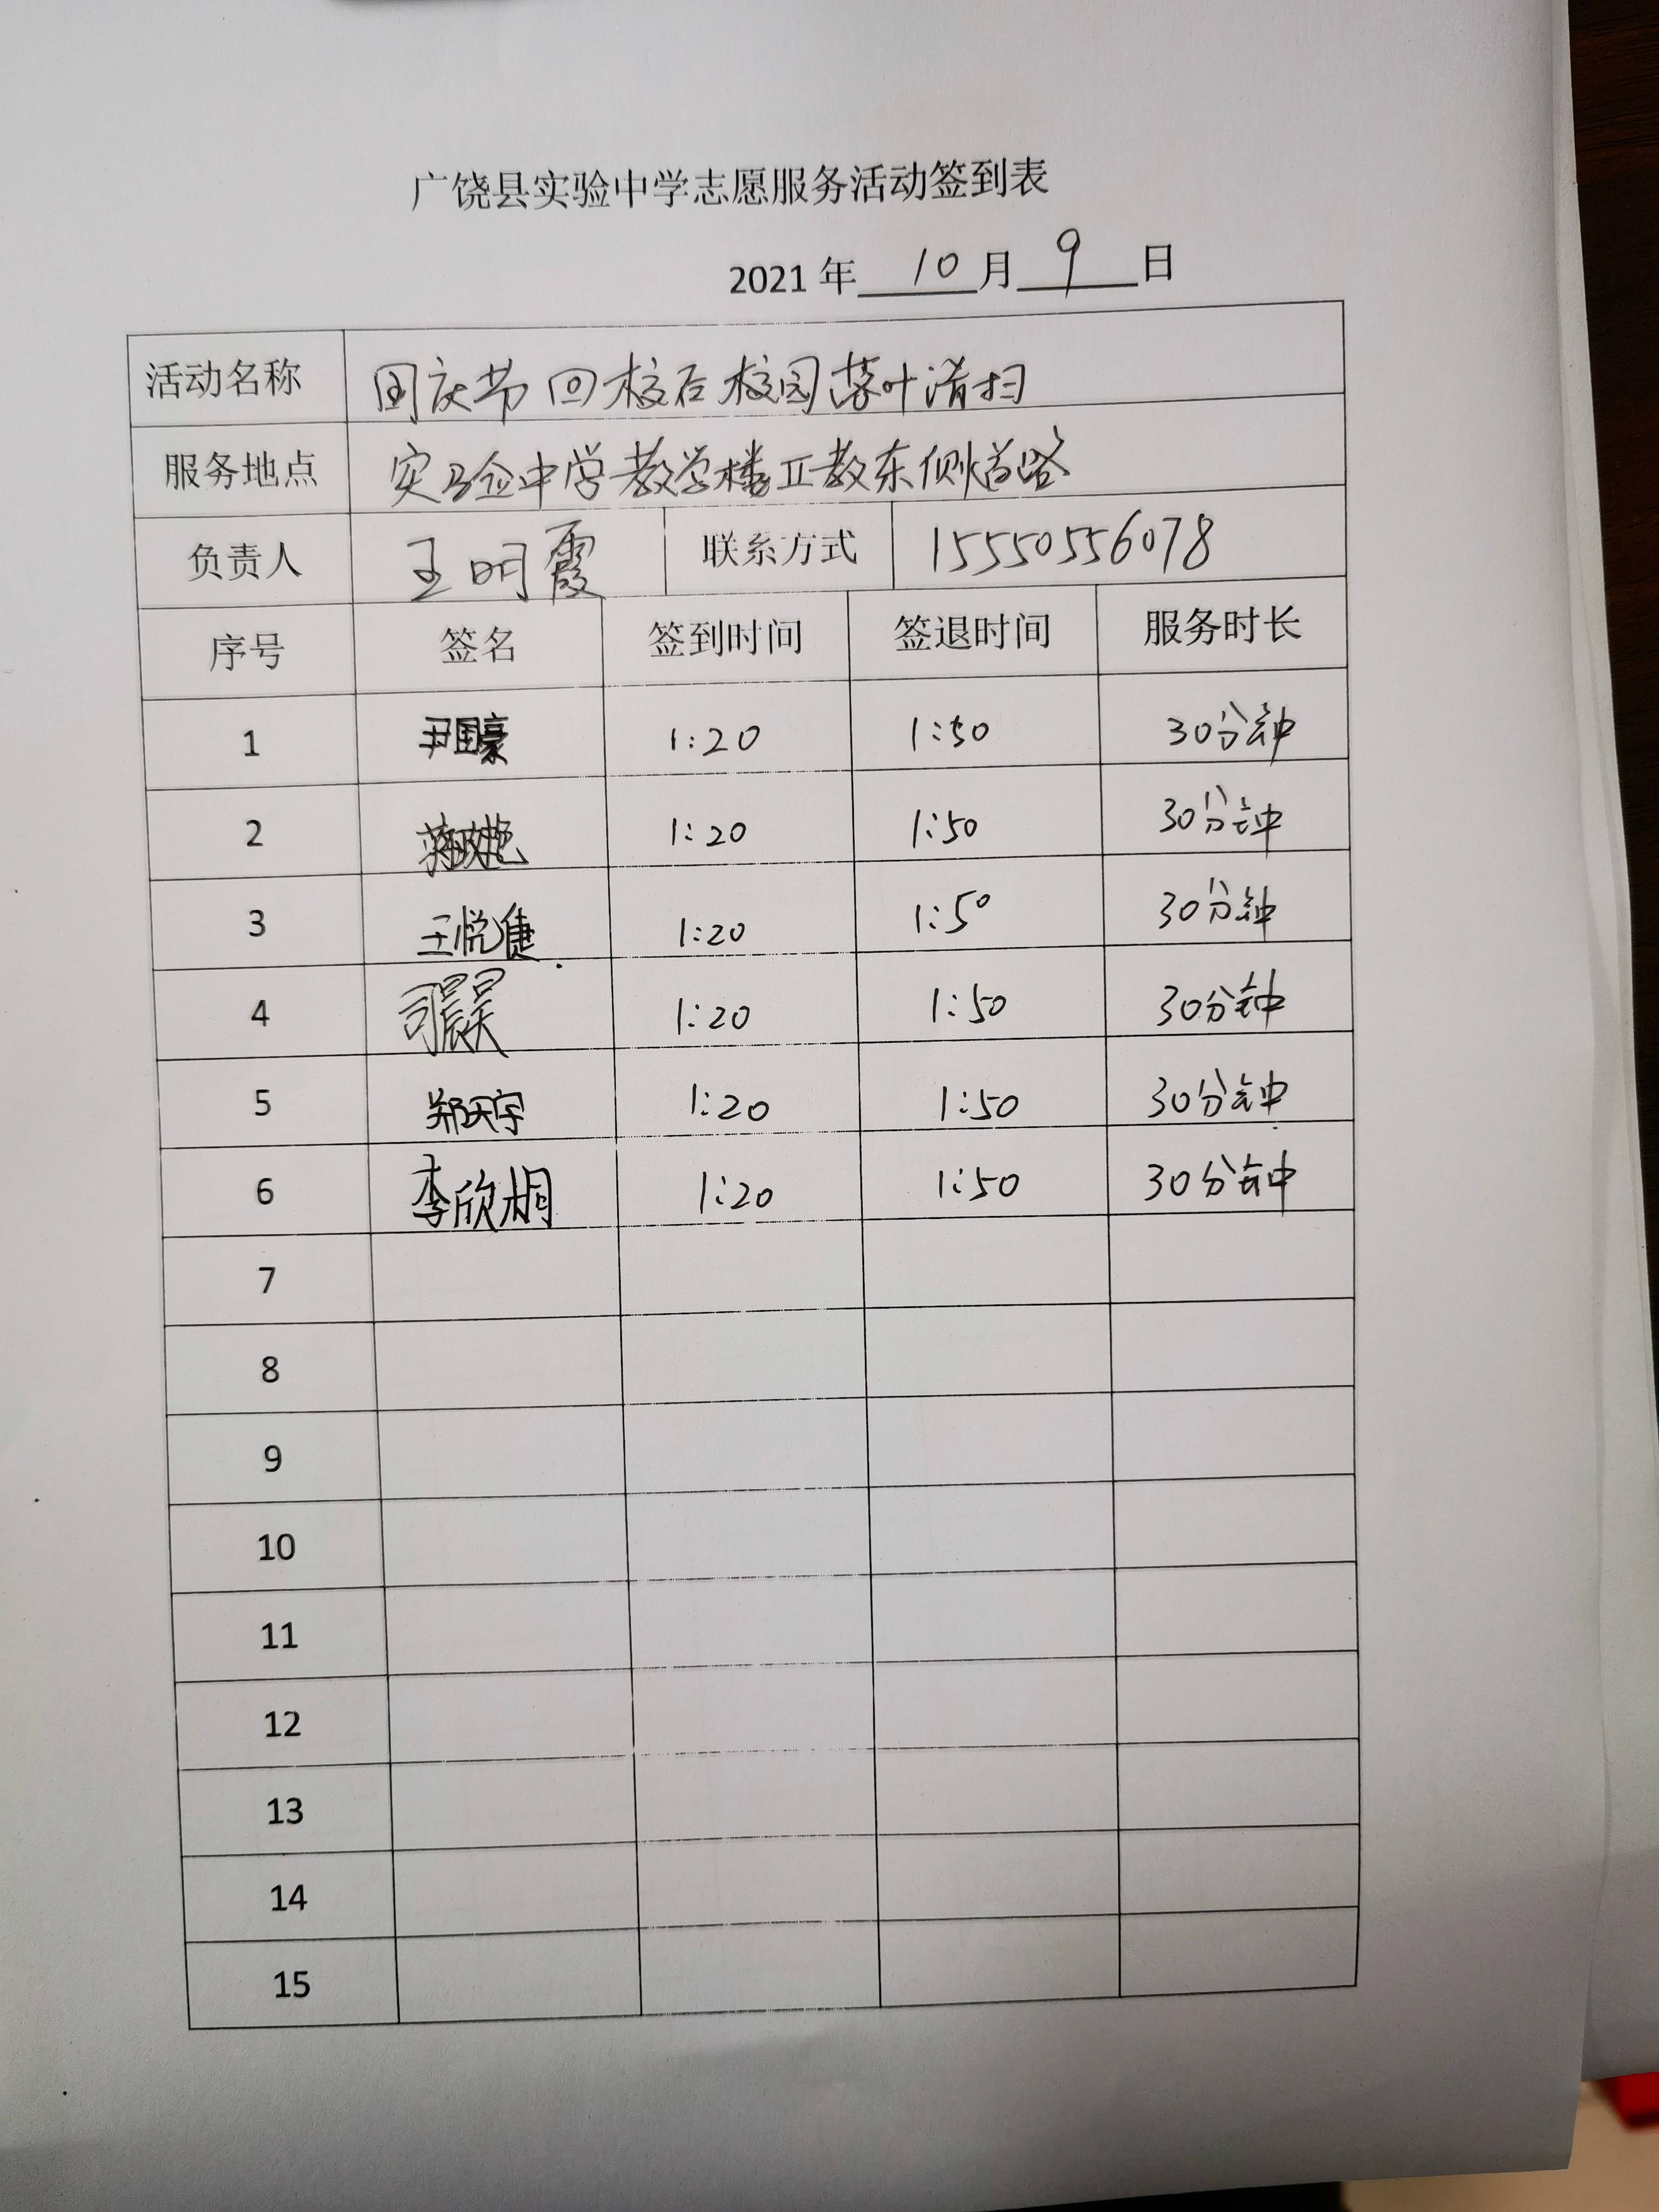 广饶县实验中学志愿服务活动签到表
2021年 10 月 9 日
活动名称 国庆节回校后校园落叶清扫
服务地点 实验中学教学楼II教东侧道路
负责人 王明霞 联系方式 15550556078
序号 签名 签到时间 签退时间 服务时长
1 尹国豪 1:20 1:50 30分钟
2 1:20 1:50 30分钟
3 王悦倢 1:20 1:50 30分钟
4 司晨昊 1:20 1:50 30分钟
5 郑天宇 1:20 1:50 30分钟
6 李欣桐 1:20 1:50 30分钟
7
8
9
10
11
12
13
14
15